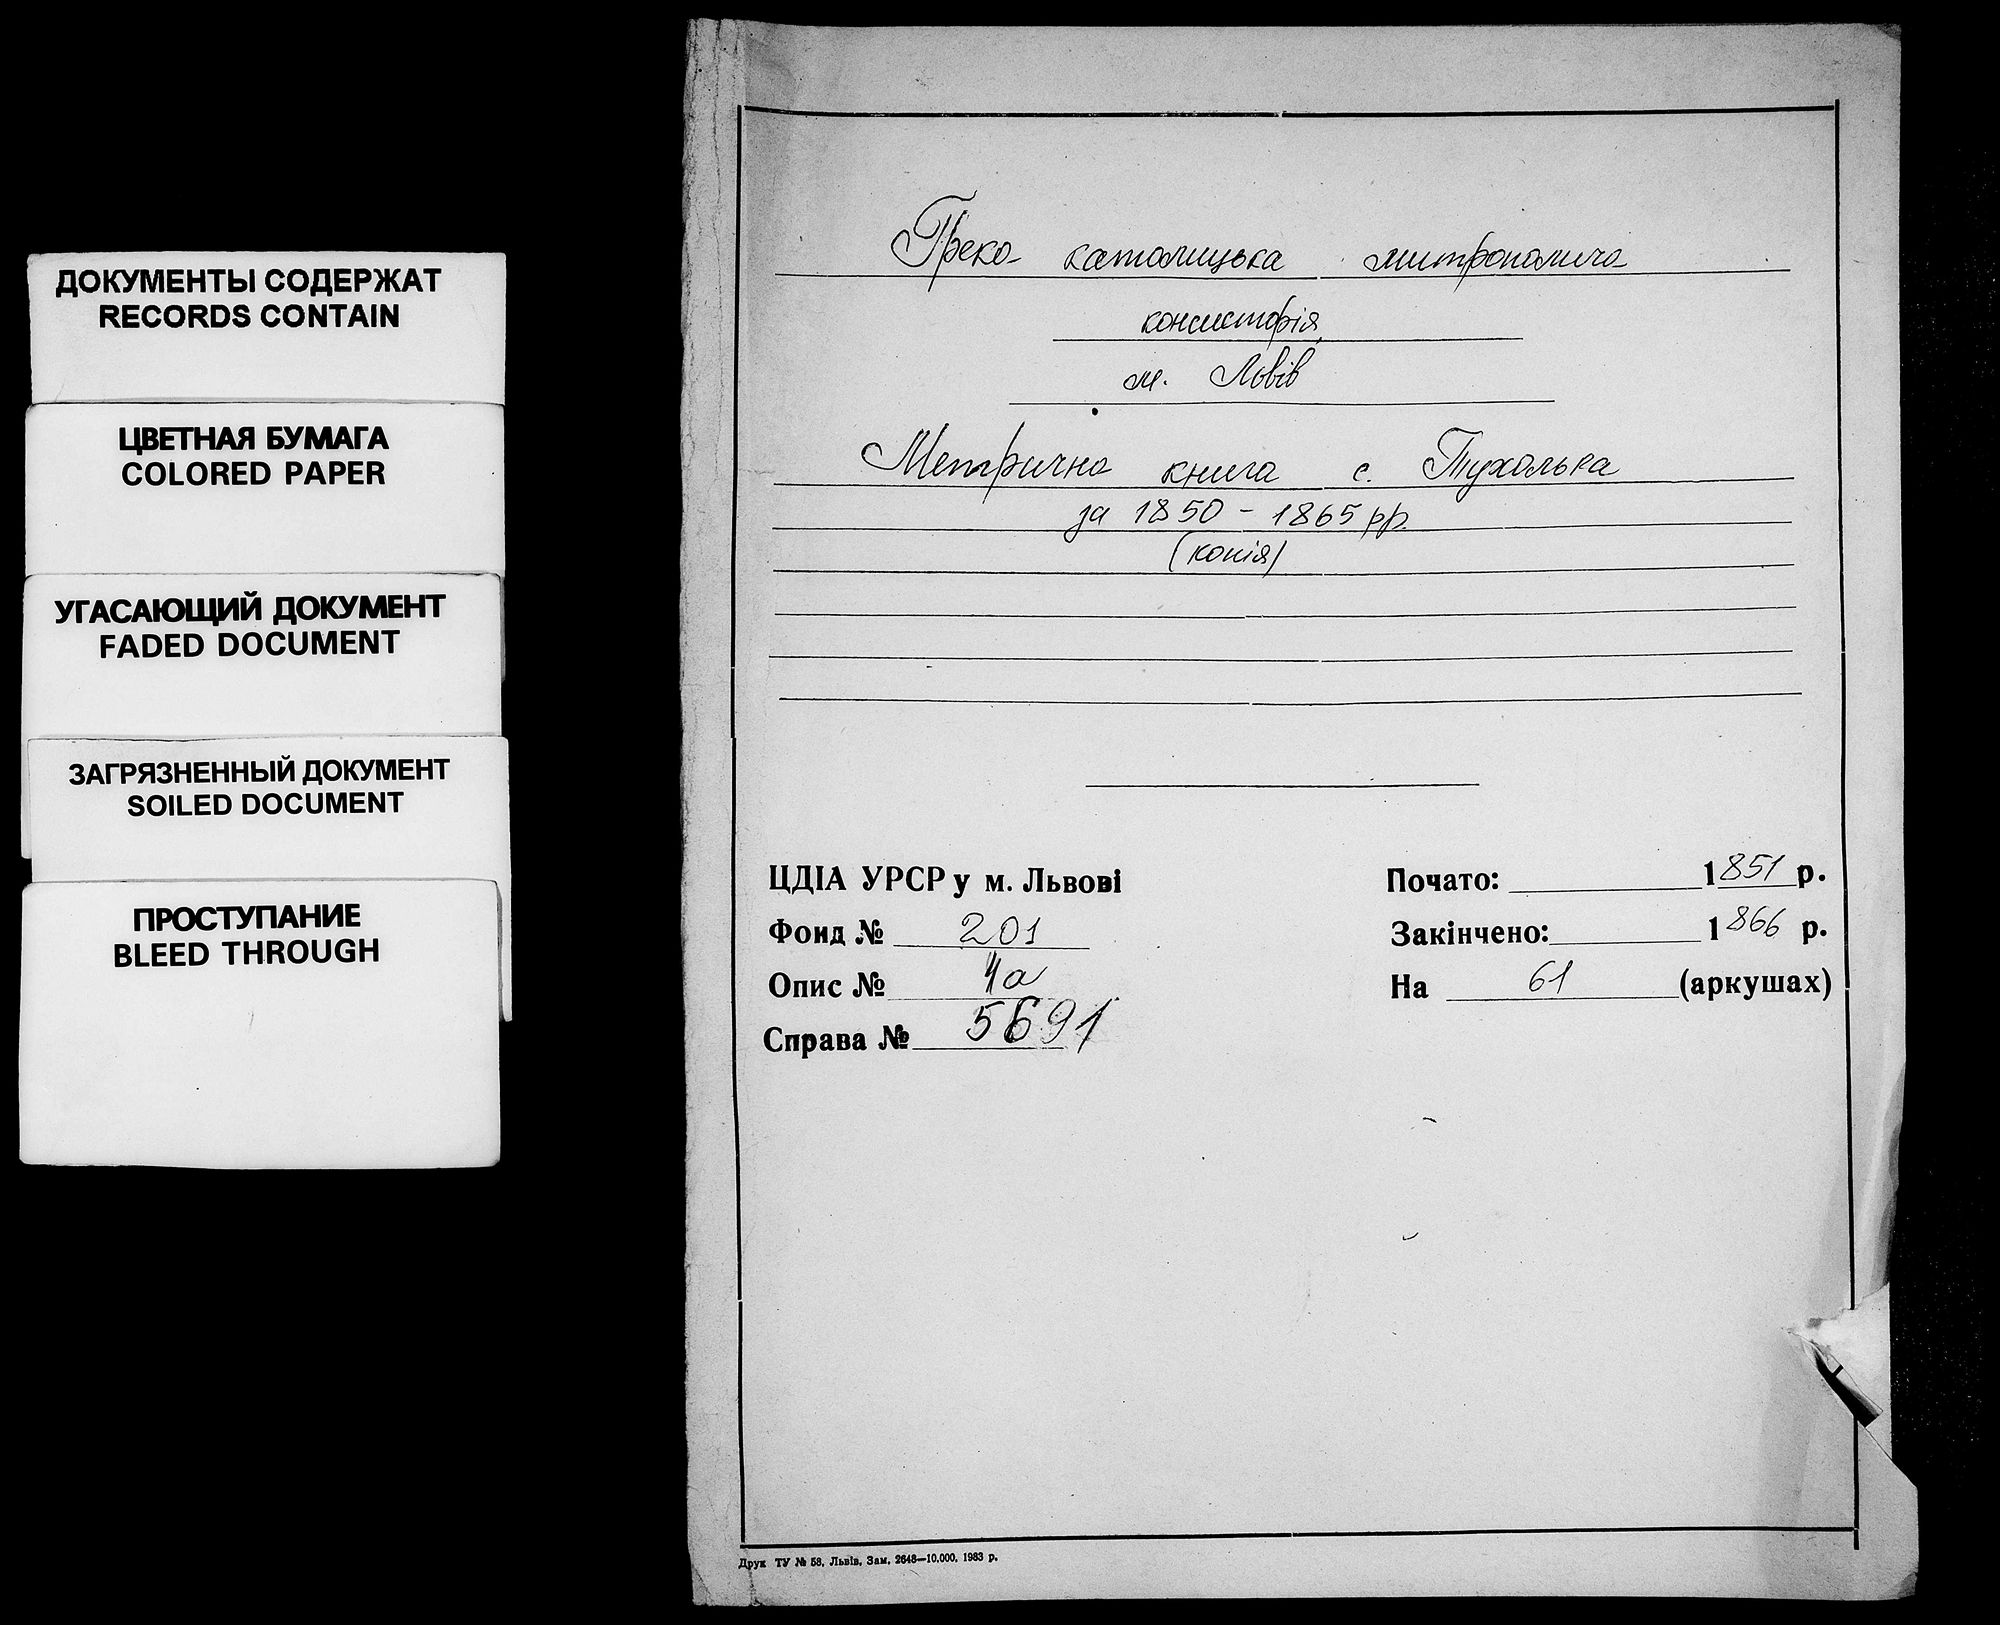 ДОКУМЕНТЫ СОДЕРЖАТ
RECORDS CONTAIN
ЦВЕТНАЯ БУМАГА
COLORED PAPER
УГАСАЮЩИЙ ДОКУМЕНТ
FADED DOCUMENT
ЗАГРЯЗНЕННЫЙ ДОКУМЕНТ
SOILED DOCUMENT
ПРОСТУПАНИЕ
BLEED THROUGH
Греко-католицька митрополича
консисторія,
м. Львів
Метрична книга с. Тухолька
за 1850 - 1865 рр.
(копія)
ЦДІА УРСР у м. Львові
Фонд № 201
Опис № 4а
Справа № 5691
Почато: 1851 р.
Закінчено: 1866 р.
На 61 (аркушах)
Друк ТУ № 58, Львів, Зам. 2648—10.000. 1983 р.